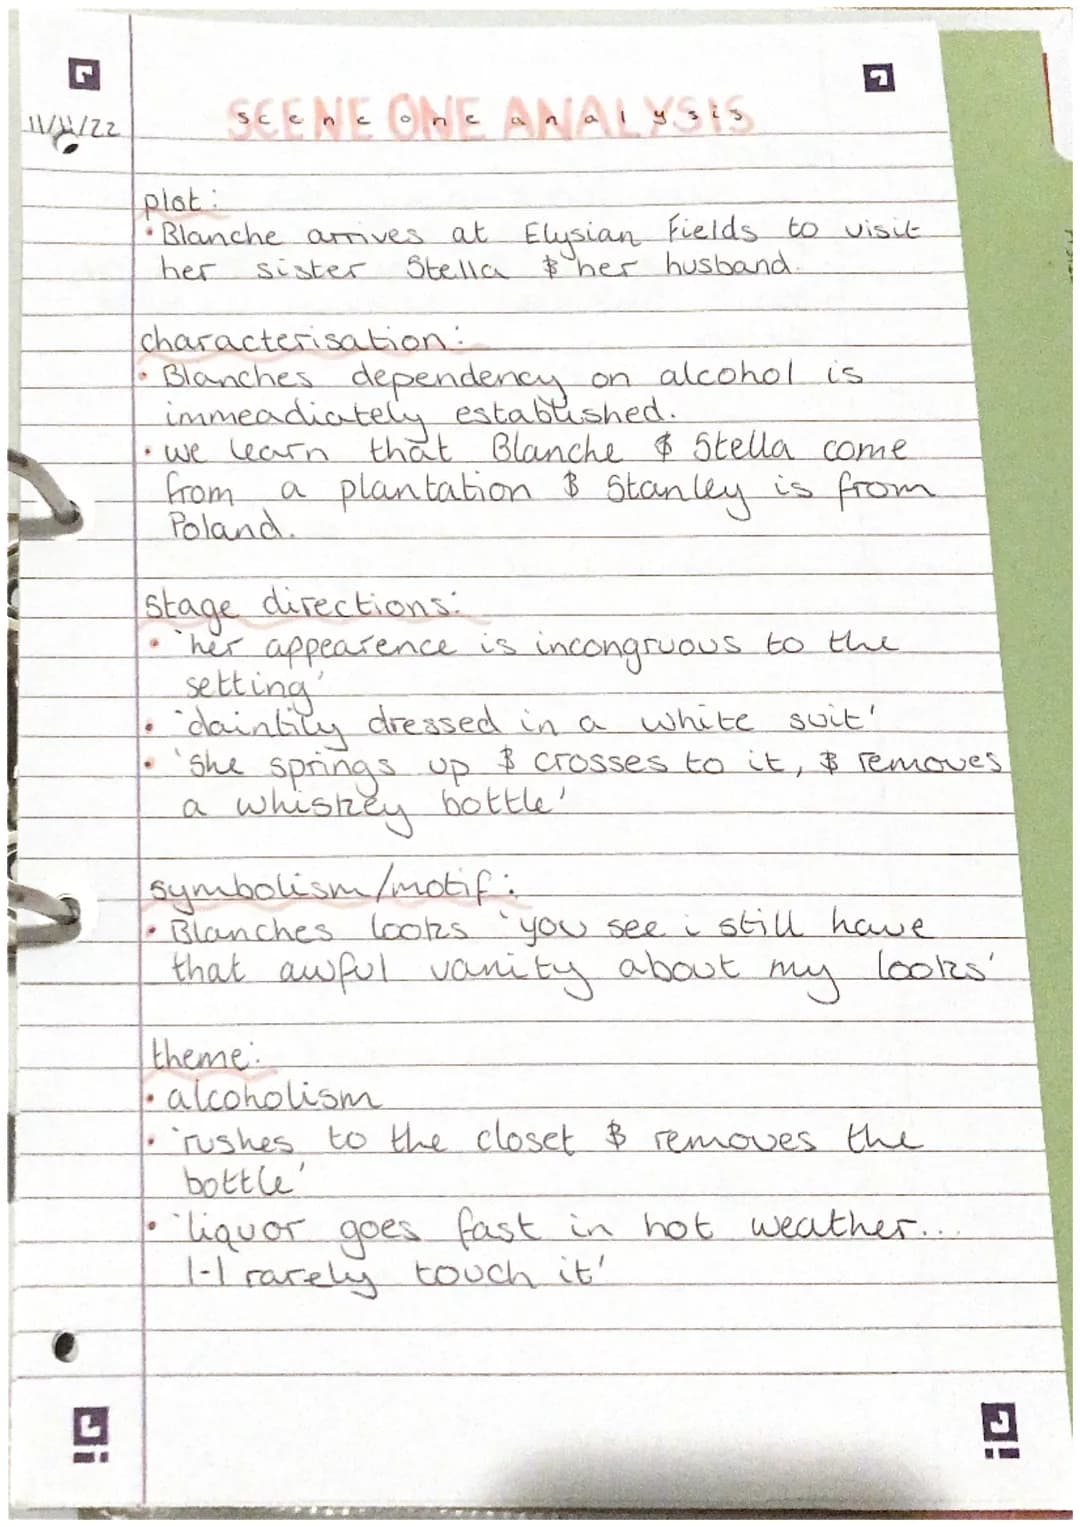 SCENE ONE ANALYSIS
scene one analysis
11/11/22
plot:
• Blanche arrives at Elysian Fields to visit
her sister Stella & her husband.
characterisation:
• Blanches dependency on alcohol is
immeadiately established.
• we learn that Blanche & Stella come
from a plantation & Stanley is from
Poland.
stage directions:
• 'her appearence is incongruous to the
setting'
• 'daintily dressed in a white suit'
• 'She springs up & crosses to it, & removes
a whiskey bottle'
symbolism/motif:
• Blanches looks 'you see i still have
that awful vanity about my looks'
theme:
• alcoholism
• 'rushes to the closet & removes the
bottle'
• 'liquor goes fast in hot weather...
I-I rarely touch it'